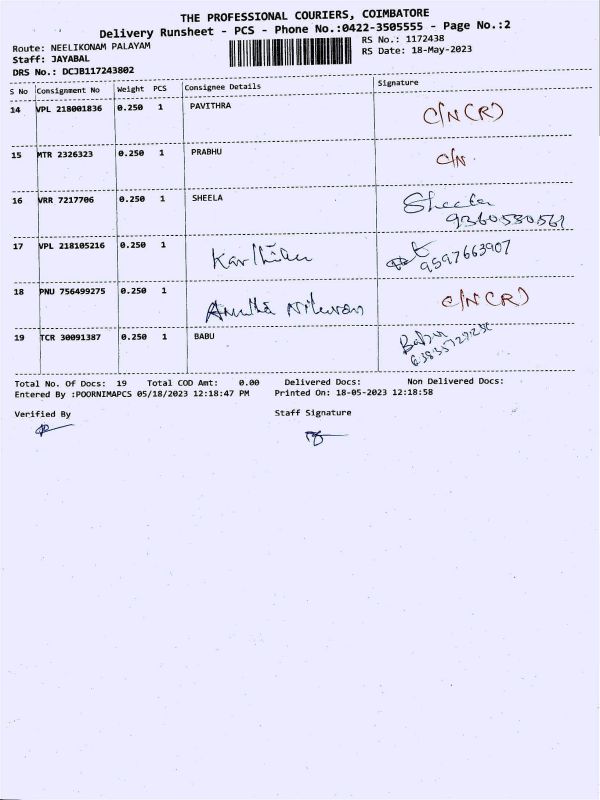 THE PROFESSIONAL COURIERS, COIMBATORE
Delivery Runsheet - PCS - Phone No.:0422-3505555 - Page No.:2
Route: NEELIKONAM PALAYAM
RS No.: 1172438
Staff: JAYABAL
RS Date: 18-May-2023
DRS No.: DCJB117243802
S No Consignment No Weight PCS Consignee Details Signature
14 VPL 218001836 0.250 1 PAVITHRA C/N (R)
15 MTR 2326323 0.250 1 PRABHU C/N.
16 VRR 7217706 0.250 1 SHEELA Sheela
9360530561
17 VPL 218105216 0.250 1 Karthika
9597663907
18 PNU 756499275 0.250 1 C/N (R)
19 TCR 30091387 0.250 1 BABU Babu
Total No. Of Docs: 19 Total COD Amt: 0.00 Delivered Docs: Non Delivered Docs:
Entered By :POORNIMAPCS 05/18/2023 12:18:47 PM Printed On: 18-05-2023 12:18:58
Verified By Staff Signature